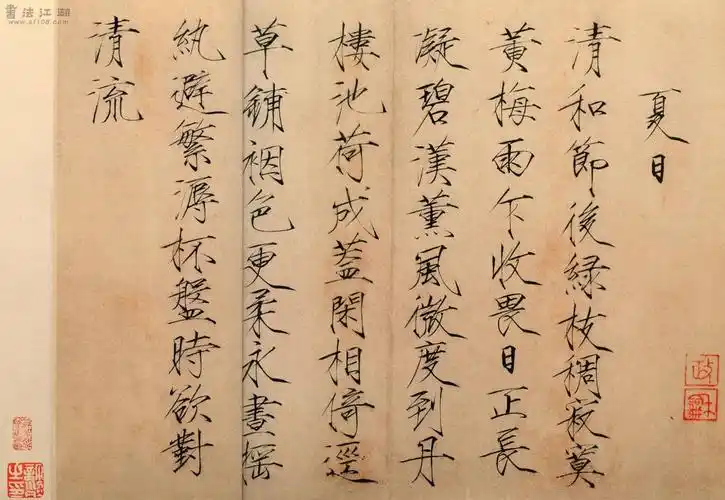 書法江湖
www.sf108.com
夏日
清和節後緑枝稠寂寞
黃梅雨乍收畏日正長
凝碧漢薰風微度到丹
樓池荷成蓋閑相倚逕
草鋪裀色更柔永晝搖
紈避繁溽杯盤時欲對
清流
政
和